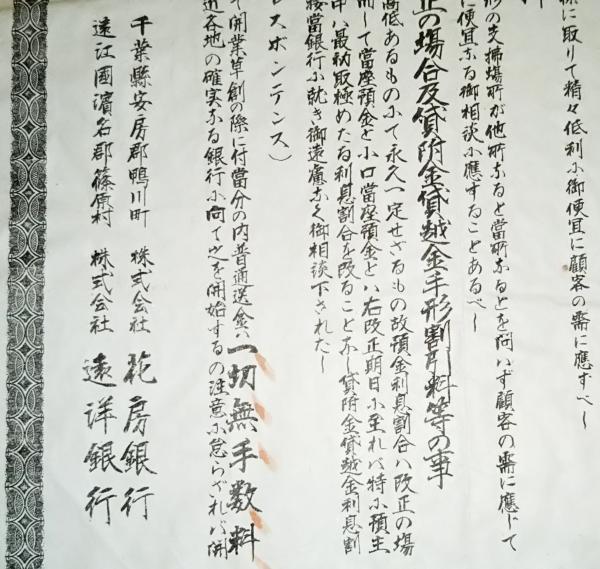 様に取りて精々低利小御便宜に顧客の需に應ずべし
形の支拂場所が他所なると當所なるとを問はず顧客の需に應じて
に便宜なる御相談小應ずることあるべし
正の場合及貸附金貸越金手形割引料等の事
高低あるもの小て永久一定せざるもの故預金利息割合ハ改正の場
而して當座預金と小口當座預金とハ右改正期日小至れバ特小預主
中ハ最初取極めたる利息割合を改ることなし貸附金貸越金利息割
接當銀行小就き御遠慮なく御相談下されたし
レスポンデンス)
て開業草創の際に付當分の内普通送金ハ一切無手数料
近各地の確実なる銀行小向て之を開始するの注意小怠らざれバ開
千葉縣安房郡鴨川町 株式会社 花房銀行
遠江國濱名郡篠原村 株式会社 遠洋銀行